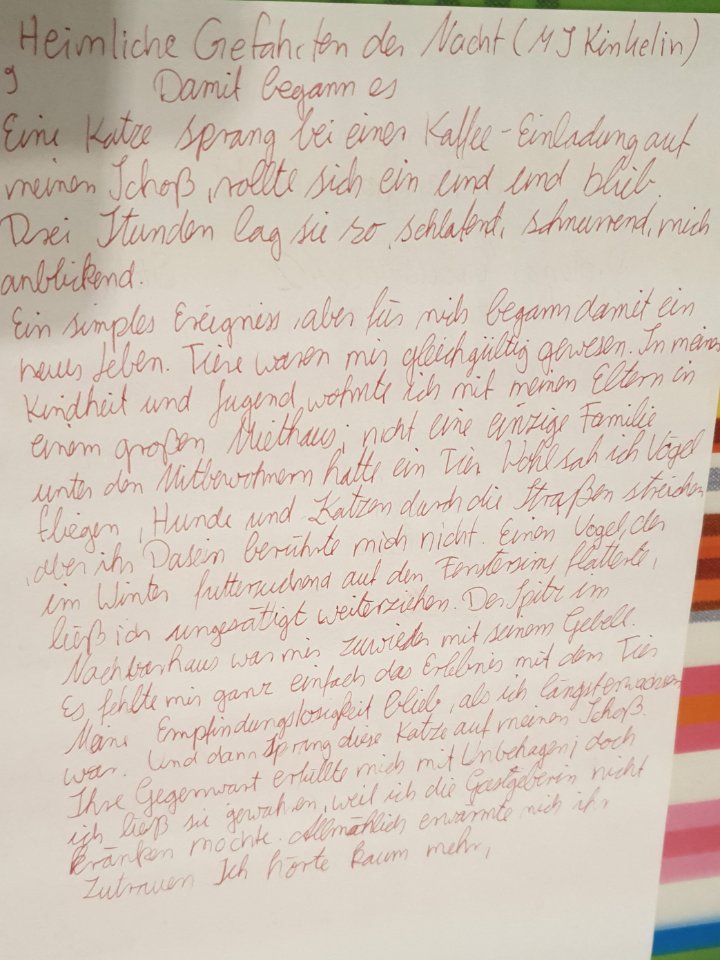 Heimliche Gefährten der Nacht (MJ Kinkelin)
9 Damit begann es
Eine Katze sprang bei einer Kaffee-Einladung auf
meinen Schoß, rollte sich ein und und blieb.
Drei Stunden lag sie so, schlafend, schnurrend, mich
anblickend.
Ein simples Ereigniss, aber für mich begann damit ein
neues Leben. Tiere waren mir gleichgültig gewesen. In meiner
Kindheit und Jugend wohnte ich mit meinen Eltern in
einem großen Miethaus; nicht eine einzige Familie
unter den Mitbewohnern hatte ein Tier. Wohl sah ich Vögel
fliegen, Hunde und Katzen durch die Straßen streichen
, aber ihr Dasein berührte mich nicht. Einen Vogel, der
im Winter futtersuchend auf den Fenstersims flatterte,
ließ ich ungesättigt weiterziehen. Der Spitz im
Nachbarhaus war mir zuwieder mit seinem Gebell.
Es fehlte mir ganz einfach das Erlebnis mit dem Tier
Meine Empfindungslosigkeit blieb, als ich längst erwachsen
war. Und dann sprang diese Katze auf meinen Schoß.
Ihre Gegenwart erfüllte mich mit Unbehagen; doch
ich ließ sie gewähren, weil ich die Gastgeberin nicht
kränken mochte. Allmählich erwärmte mich ihr
Zutrauen Ich hörte kaum mehr,